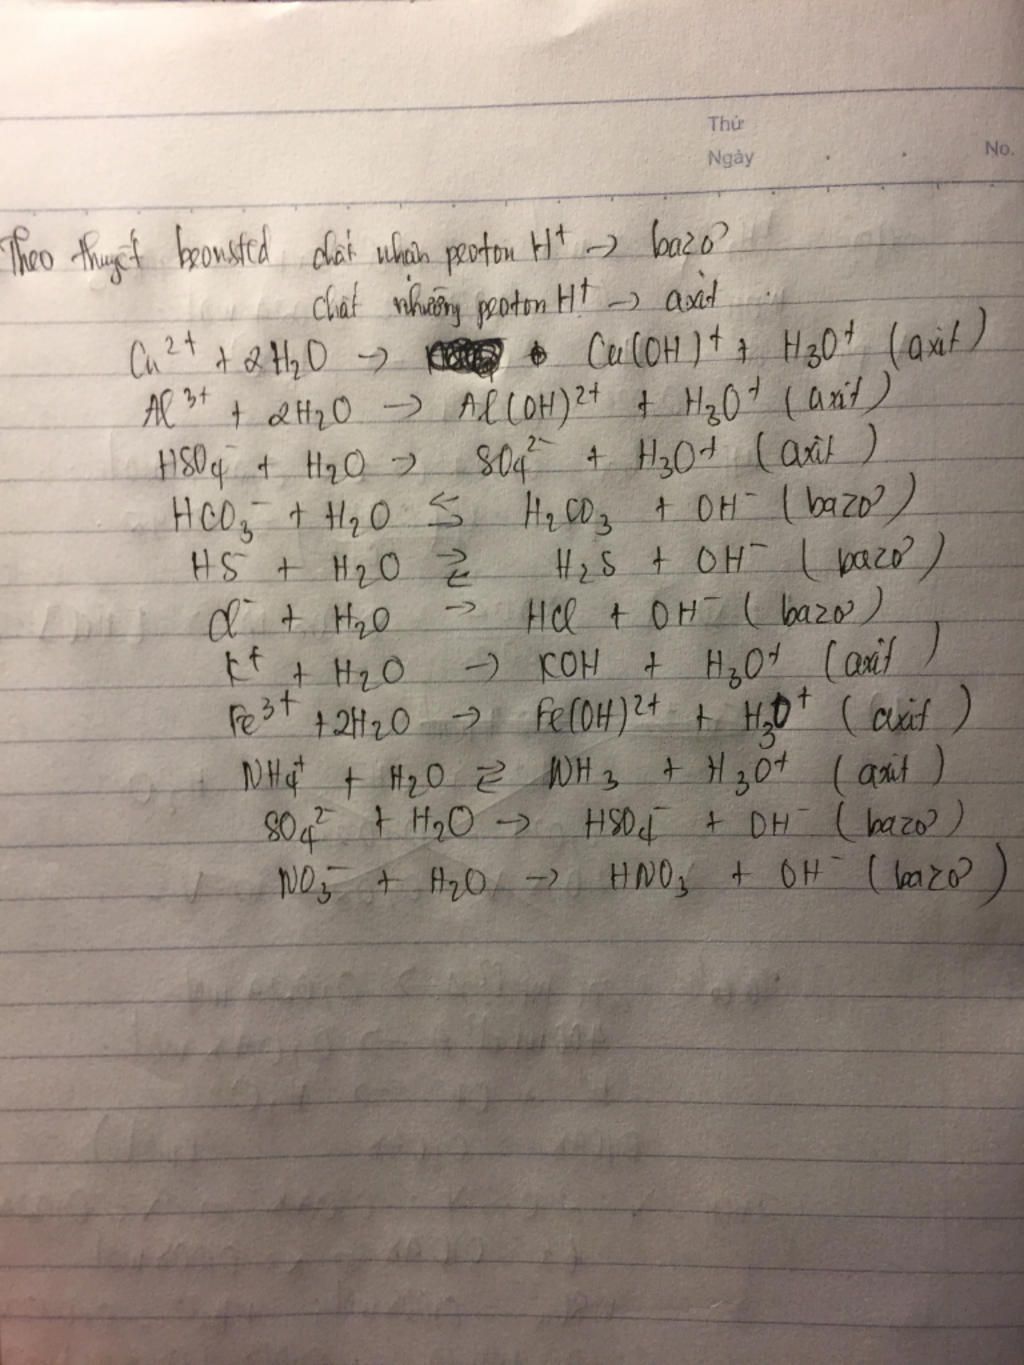 Thứ
Ngày
No.
Theo thuyết bronsted chất nhận proton H⁺ → bazơ
chất nhường proton H⁺ → axit
Cu²⁺ + 2H₂O → Cu(OH)⁺ + H₃O⁺ (axit)
Al³⁺ + 2H₂O → Al(OH)²⁺ + H₃O⁺ (axit)
HSO₄⁻ + H₂O → SO₄²⁻ + H₃O⁺ (axit)
HCO₃⁻ + H₂O ⇆ H₂CO₃ + OH⁻ (bazơ)
HS⁻ + H₂O ⇄ H₂S + OH⁻ (bazơ)
Cl⁻ + H₂O → HCl + OH⁻ (bazơ)
K⁺ + H₂O → KOH + H₃O⁺ (axit)
Fe³⁺ + 2H₂O → Fe(OH)²⁺ + H₃O⁺ (axit)
NH₄⁺ + H₂O ⇄ NH₃ + H₃O⁺ (axit)
SO₄²⁻ + H₂O → HSO₄⁻ + OH⁻ (bazơ)
NO₃⁻ + H₂O → HNO₃ + OH⁻ (bazơ)